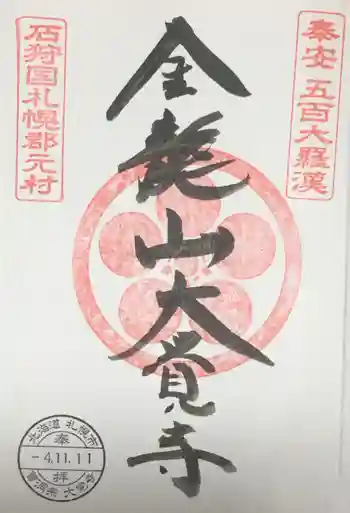 奉安 五百大羅漢
金龍山大覺寺
石狩国札幌郡元村
北海道 札幌市
奉拝
-4.11.11
曹洞宗 大覚寺